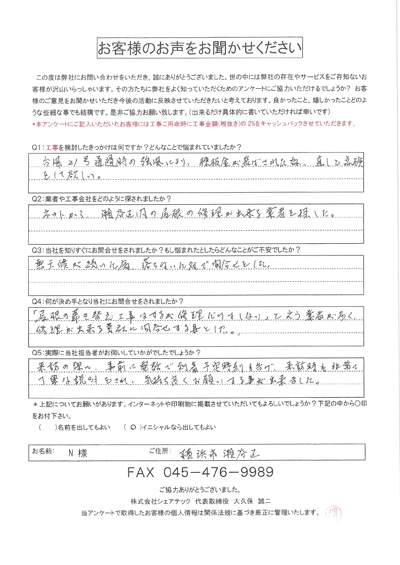 お客様のお声をお聞かせください
この度は弊社にお問い合わせをいただき、誠にありがとうございました。世の中には弊社の存在やサービスをご存知ないお
客様が沢山いらっしゃいます。その方たちに弊社をよく知っていただくためのアンケートにご協力いただけるでしょうか? お客
様のご意見をお聞かせいただき今後の活動に反映させていただきたいと考えております。良かったこと、嬉しかったことどのよう
な些細な事でも結構です。是非ご協力お願い致します。(出来るだけ具体的に書いていただければ幸いです)
*本アンケートにご記入いただいたお客様には工事ご用命時に工事金額(税抜き)の2%をキャッシュバックさせていただきます。
Q1:工事を検討したきっかけは何ですか?どんなことで悩まれていましたか?
台風21号通過時の強風により、棟板金が飛ばされた為、直して
をして欲しい。
Q2:業者や工事会社をどのように探されましたか?
ネットから、瀬谷区内の屋根の修理が出来る業者を探した。
Q3:当社を知りすぐにお問合せをされましたか?もし悩まれたとしたらどんなことがご不安でしたか?
悪天候が続いた為、落ちついた段で問合せをした。
Q4:何が決め手となり当社にお問合せをされましたか?
「屋根の葺き替え工事はするが修理だけはしない」と云う業者が多く、
修理が出来る貴社に問合せする事とした。
Q5:実際に当社担当者がお伺いしていかがでしたでしょうか?
来訪の際に、事前に電話で到着予定時刻を告げ、来訪時も非常に
丁寧な説明をされ、気持ち良くお願いする事が出来ました。
*上記についてお願いがあります。インターネットや印刷物に掲載させていただいてもよろしいでしょうか?下記の中から○印
をお付下さい。
( )名前を出してもよい ( ○ )イニシャルなら出してもよい
お名前: N 様 ご住所: 横浜市瀬谷区
FAX 045-476-9989
ご協力ありがとうございました。
株式会社シェアテック 代表取締役 大久保 誠二
当アンケートで取得したお客様の個人情報は関係法規に基づき厳正に管理いたします。